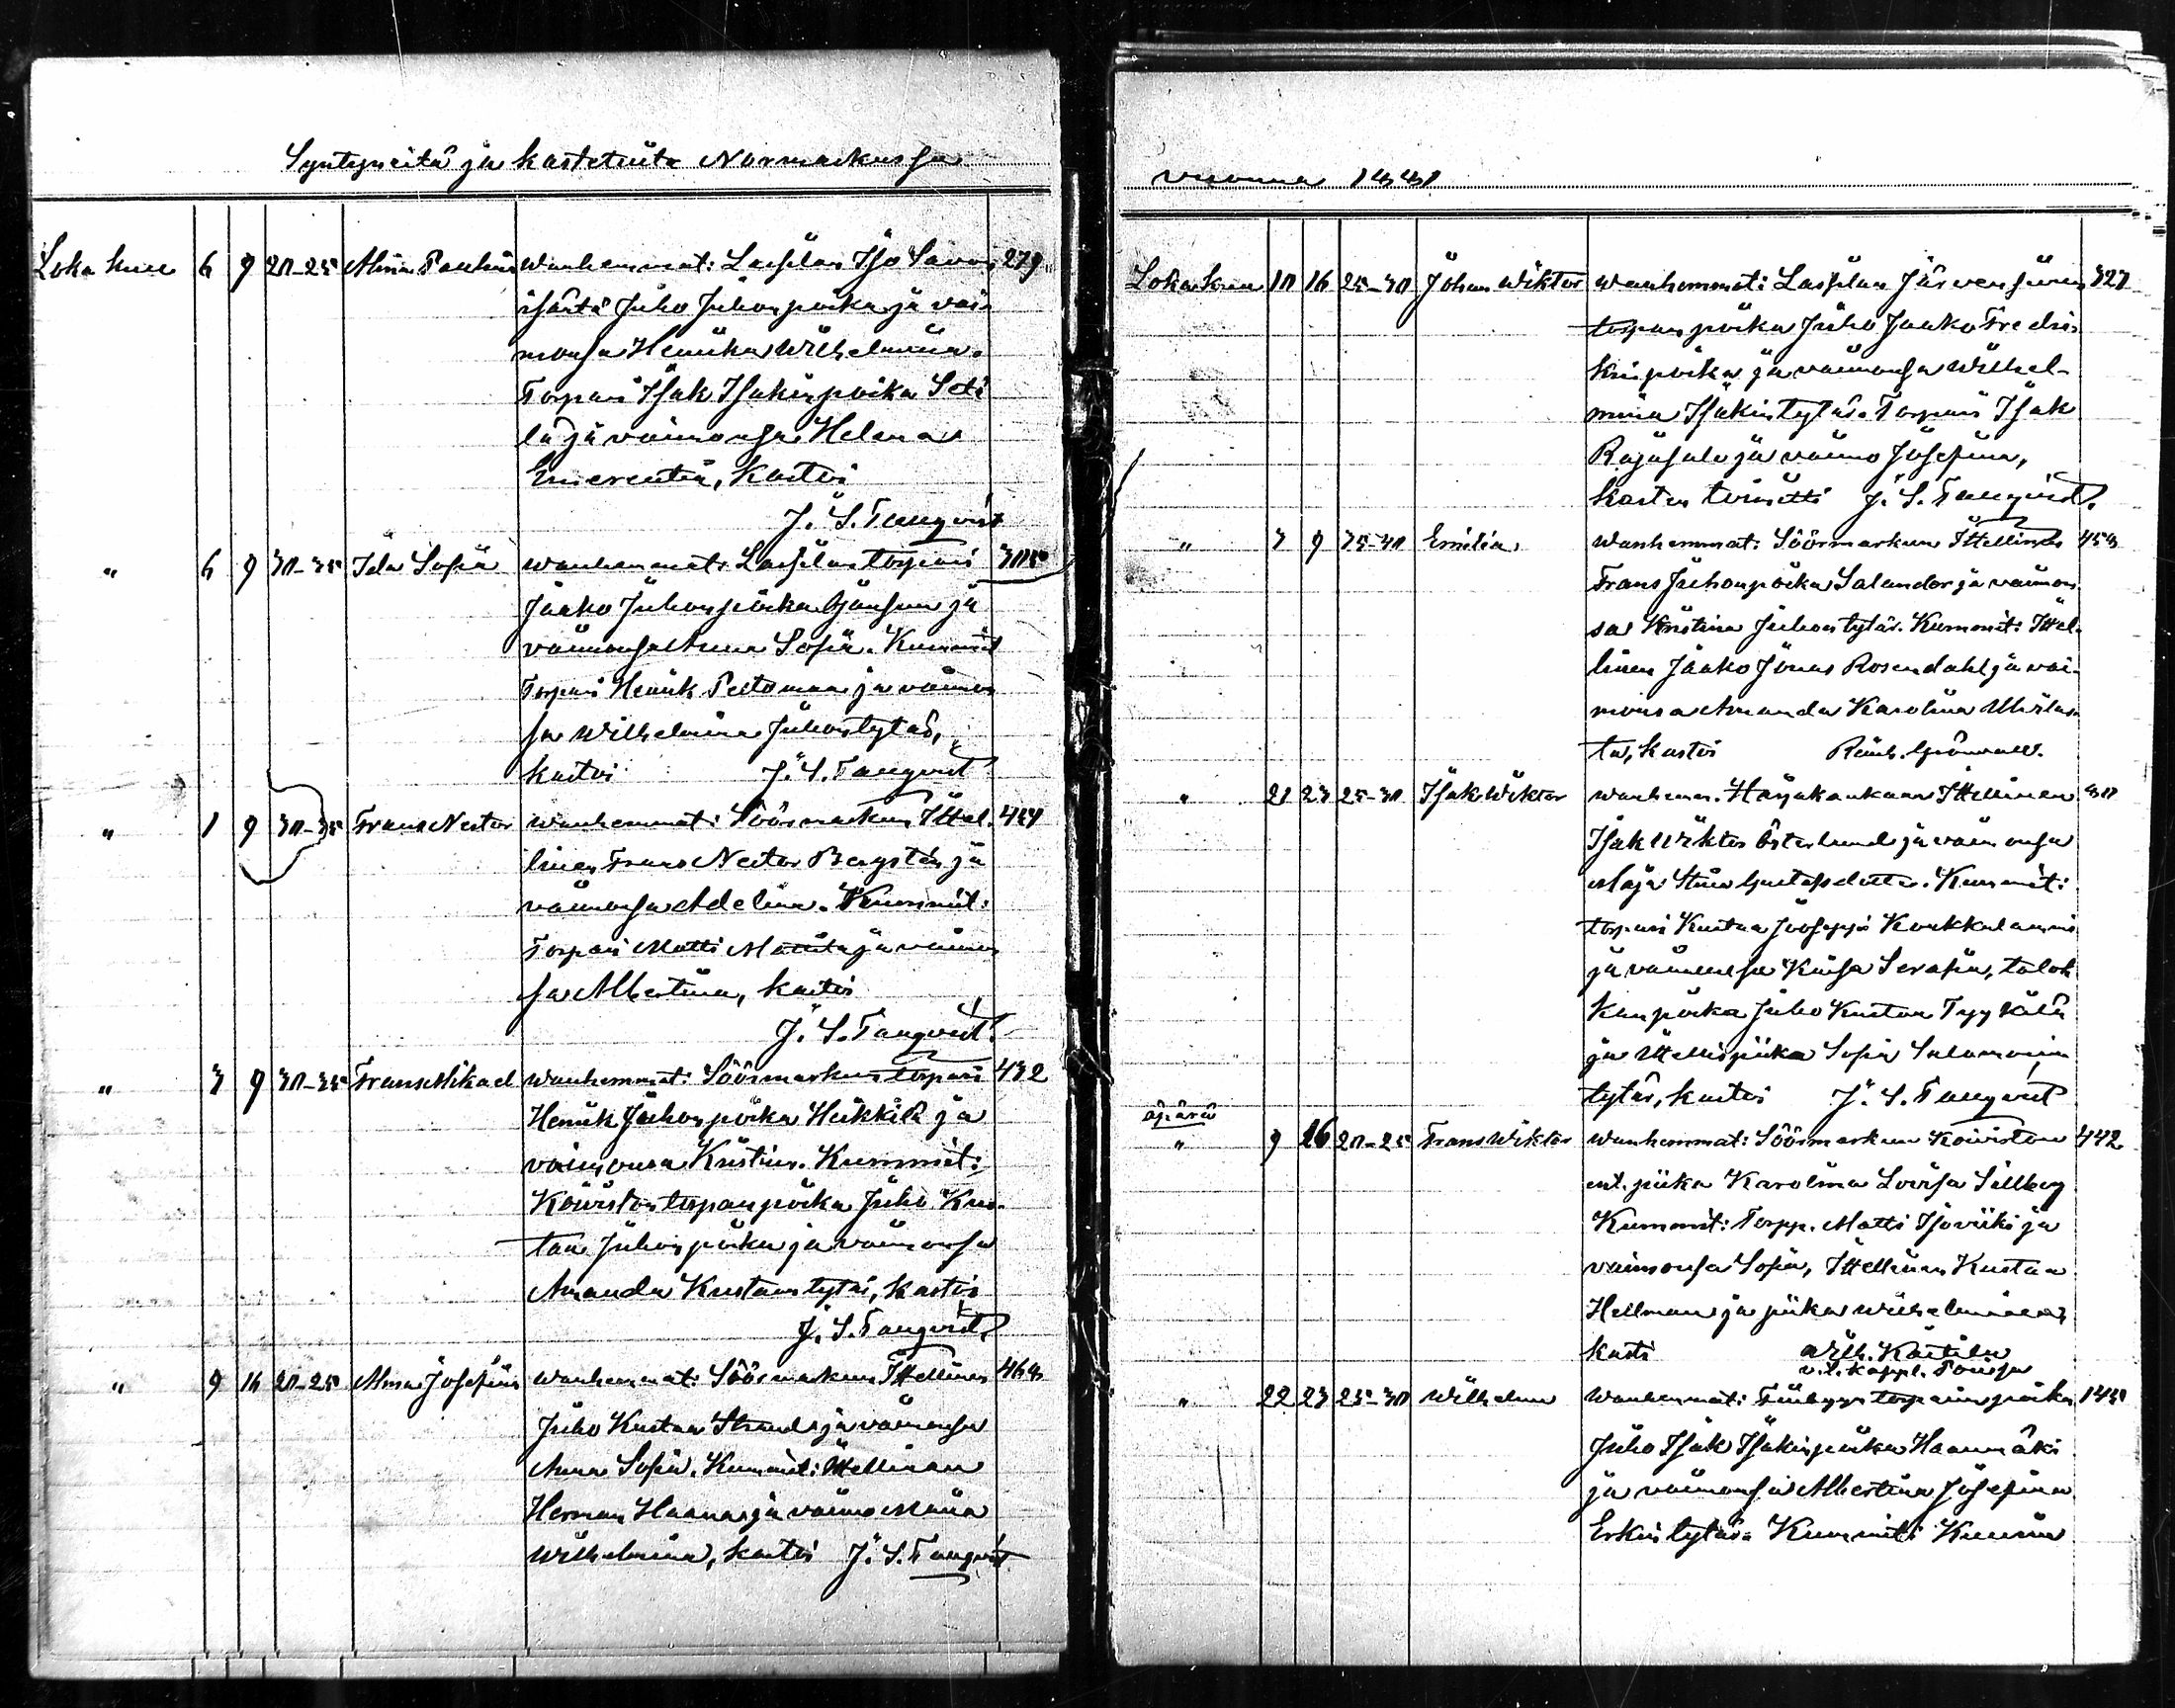 Syntyneitä ja kastetuita Normarkussa
Loka kuu 6 9 20-25 Alma Paulina Wanhemmat: Lassilan Iso Savon 279
isäntä Juho Juhonpoika ja vai-
monsa Henrika Wilhelmiina.
Torpari Isak Isakinpoika Seti
lä ja vaimonsa Helena
Emerentia, Kastoi
J. S. Tanqvist
" 6 9 30-35 Ida Sofia Wanhemmat: Lassilan torpari
Jaako Juhonpoika ja
vaimonsa Anna Sofia. Kummit
Torpari Henrik Peltomaa ja vaimon
sa Wilhelmina Juhontytär,
Kastoi J. S. Tanqvist
" 1 9 30-35 Frans Nestor Wanhemmat: Söörmarkun Ittel-
linen Frans Nestor Bergstén ja
vaimonsa Adelina. Kummit:
Torpari Matti Mattila ja vaimon
sa Albertina, kastoi
J. S. Tanqvist
" 3 9 30-35 Frans Mikael Wanhemmat: Söörmarkun torpari 432
Henrik Juhonpoika Heikkilä ja
vaimonsa Kristina. Kummit:
Koiviston torpanpoika Juho Kus-
taa Juhonpoika ja vaimonsa
Amanda Kustaantytär, kastoi
J. S. Tanqvist
" 9 16 20-25 Alma Josefina Wanhemmat: Söörmarkun Ittellinen 468
Juho Kustaa Strand ja vaimonsa
Anna Sofia. Kummit: Ittellinen
Herman Haana ja vaimo Maria
Wilhelmina, kastoi J. S. Tanqvist
vuonna 1881
Loka kuu 10 16 25-30 Johan Wiktor Wanhemmat: Lassilan Järvensuun 327
torpan poika Juho Jaako Fredri-
kinpoika ja vaimonsa Wilhel-
mina Isakintytär. Torpari Isak
Rajasalo ja vaimo Josefina,
Kasten toimitti J. S. Tanqvist
" 3 9 35-40 Emilia Wanhemmat: Söörmarkun Ittellinen 458
Frans Juhonpoika Salander ja vaimon
sa Kristina Juhontytär. Kummit: Ittel-
linen Jaako Jonas Rosendahl ja vai-
monsa Amanda Karolina Ulvilas-
ta, kastoi Reinh. Grönvall.
" 21 23 25-30 Isak Wiktor Wanhem. Harjakankaan Ittellinen 80
Isak Wiktor Österlund ja vaimonsa
Maja Stina Gustafsdotter. Kummit:
torpari Kustaa Jooseppi Koukkulammi
ja vaimonsa Kaisa Serafia, talol-
lisen poika Juho Kustaa Tyykilä
ja Ittellispiika Sofia Salomonin
tytär, kastoi J. S. Tanqvist
äpärä
" 9 16 20-25 Frans Wiktor Wanhemmat: Söörmarkun Koiviston 442
ent. piika Karolina Lovisa Sillberg
Kummit: Torpp. Matti Isoviiki ja
vaimonsa Sofia, Ittellinen Kustaa
Hellman ja piika Wilhelmiina
kasti Wilh.
v.t. Kappl.
" 22 23 25-30 Wilhelm Wanhemmat: Finbyyn torparin poika
Juho Isak Isakinpoika Haanmäki
ja vaimonsa Albertina Josefina
Erkintytär. Kummit: